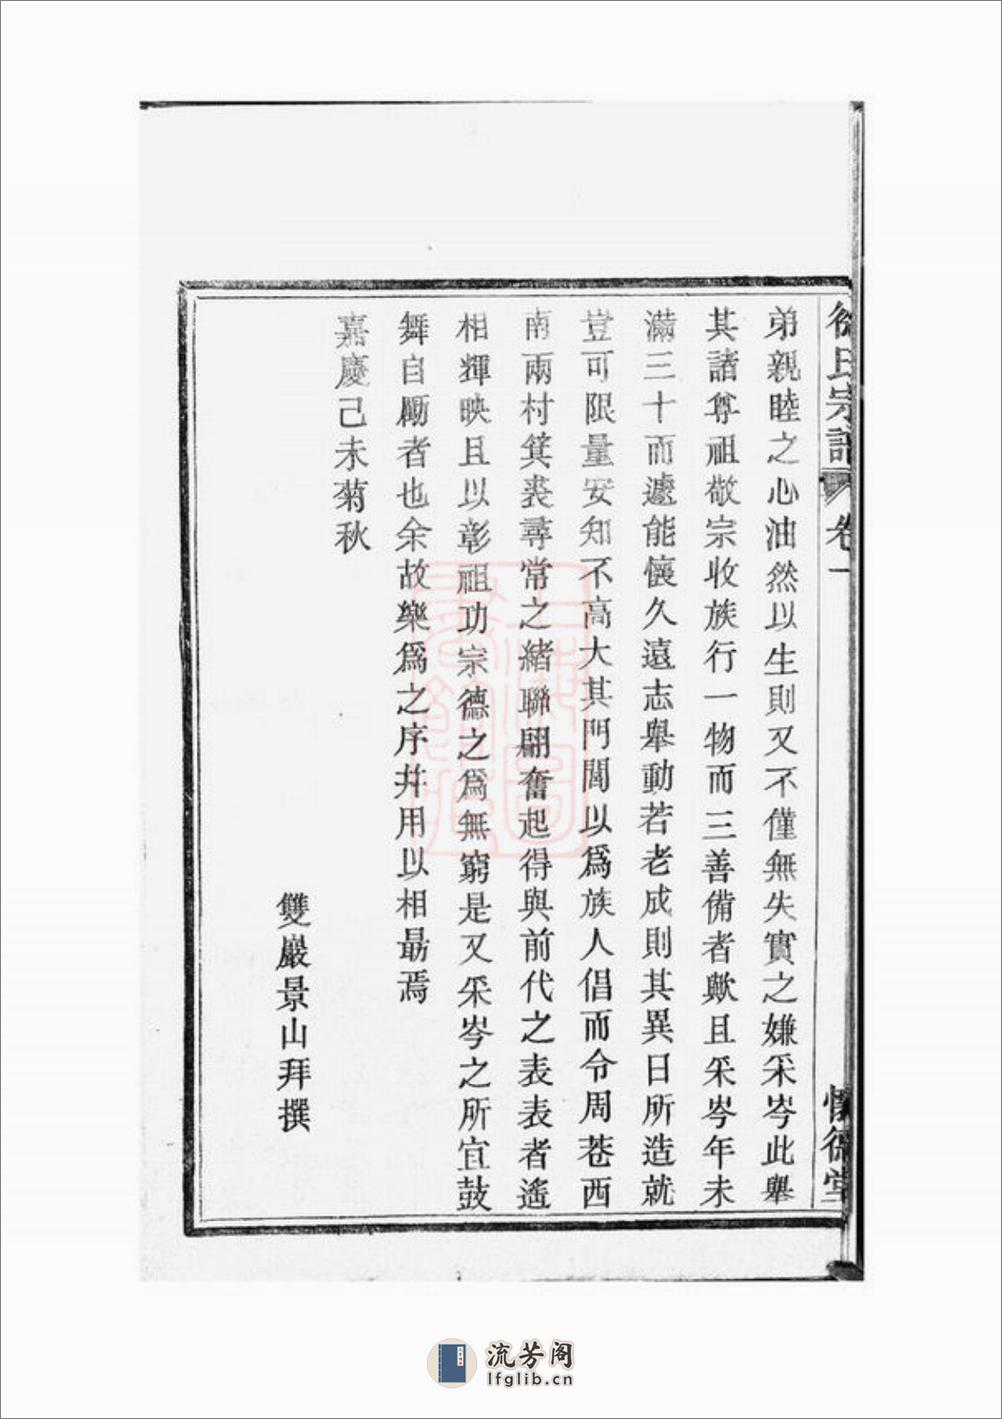 徐氏宗譜 卷一 懷德堂
弟親睦之心油然以生則又不僅無失實之嫌采岑此舉
其諸尊祖敬宗收族行一物而三善備者歟且采岑年未
滿三十而遽能懷久遠志舉動若老成則其異日所造就
豈可限量安知不高大其門閭以爲族人倡而令周苍西
南兩村箕裘尋常之緒聯翩奮起得與前代之表表者遙
相輝映且以彰祖功宗德之爲無窮是又采岑之所宜鼓
舞自勵者也余故樂爲之序并用以相勗焉
嘉慶己未菊秋
雙巖景山拜撰
流芳阁
lfglib.cn